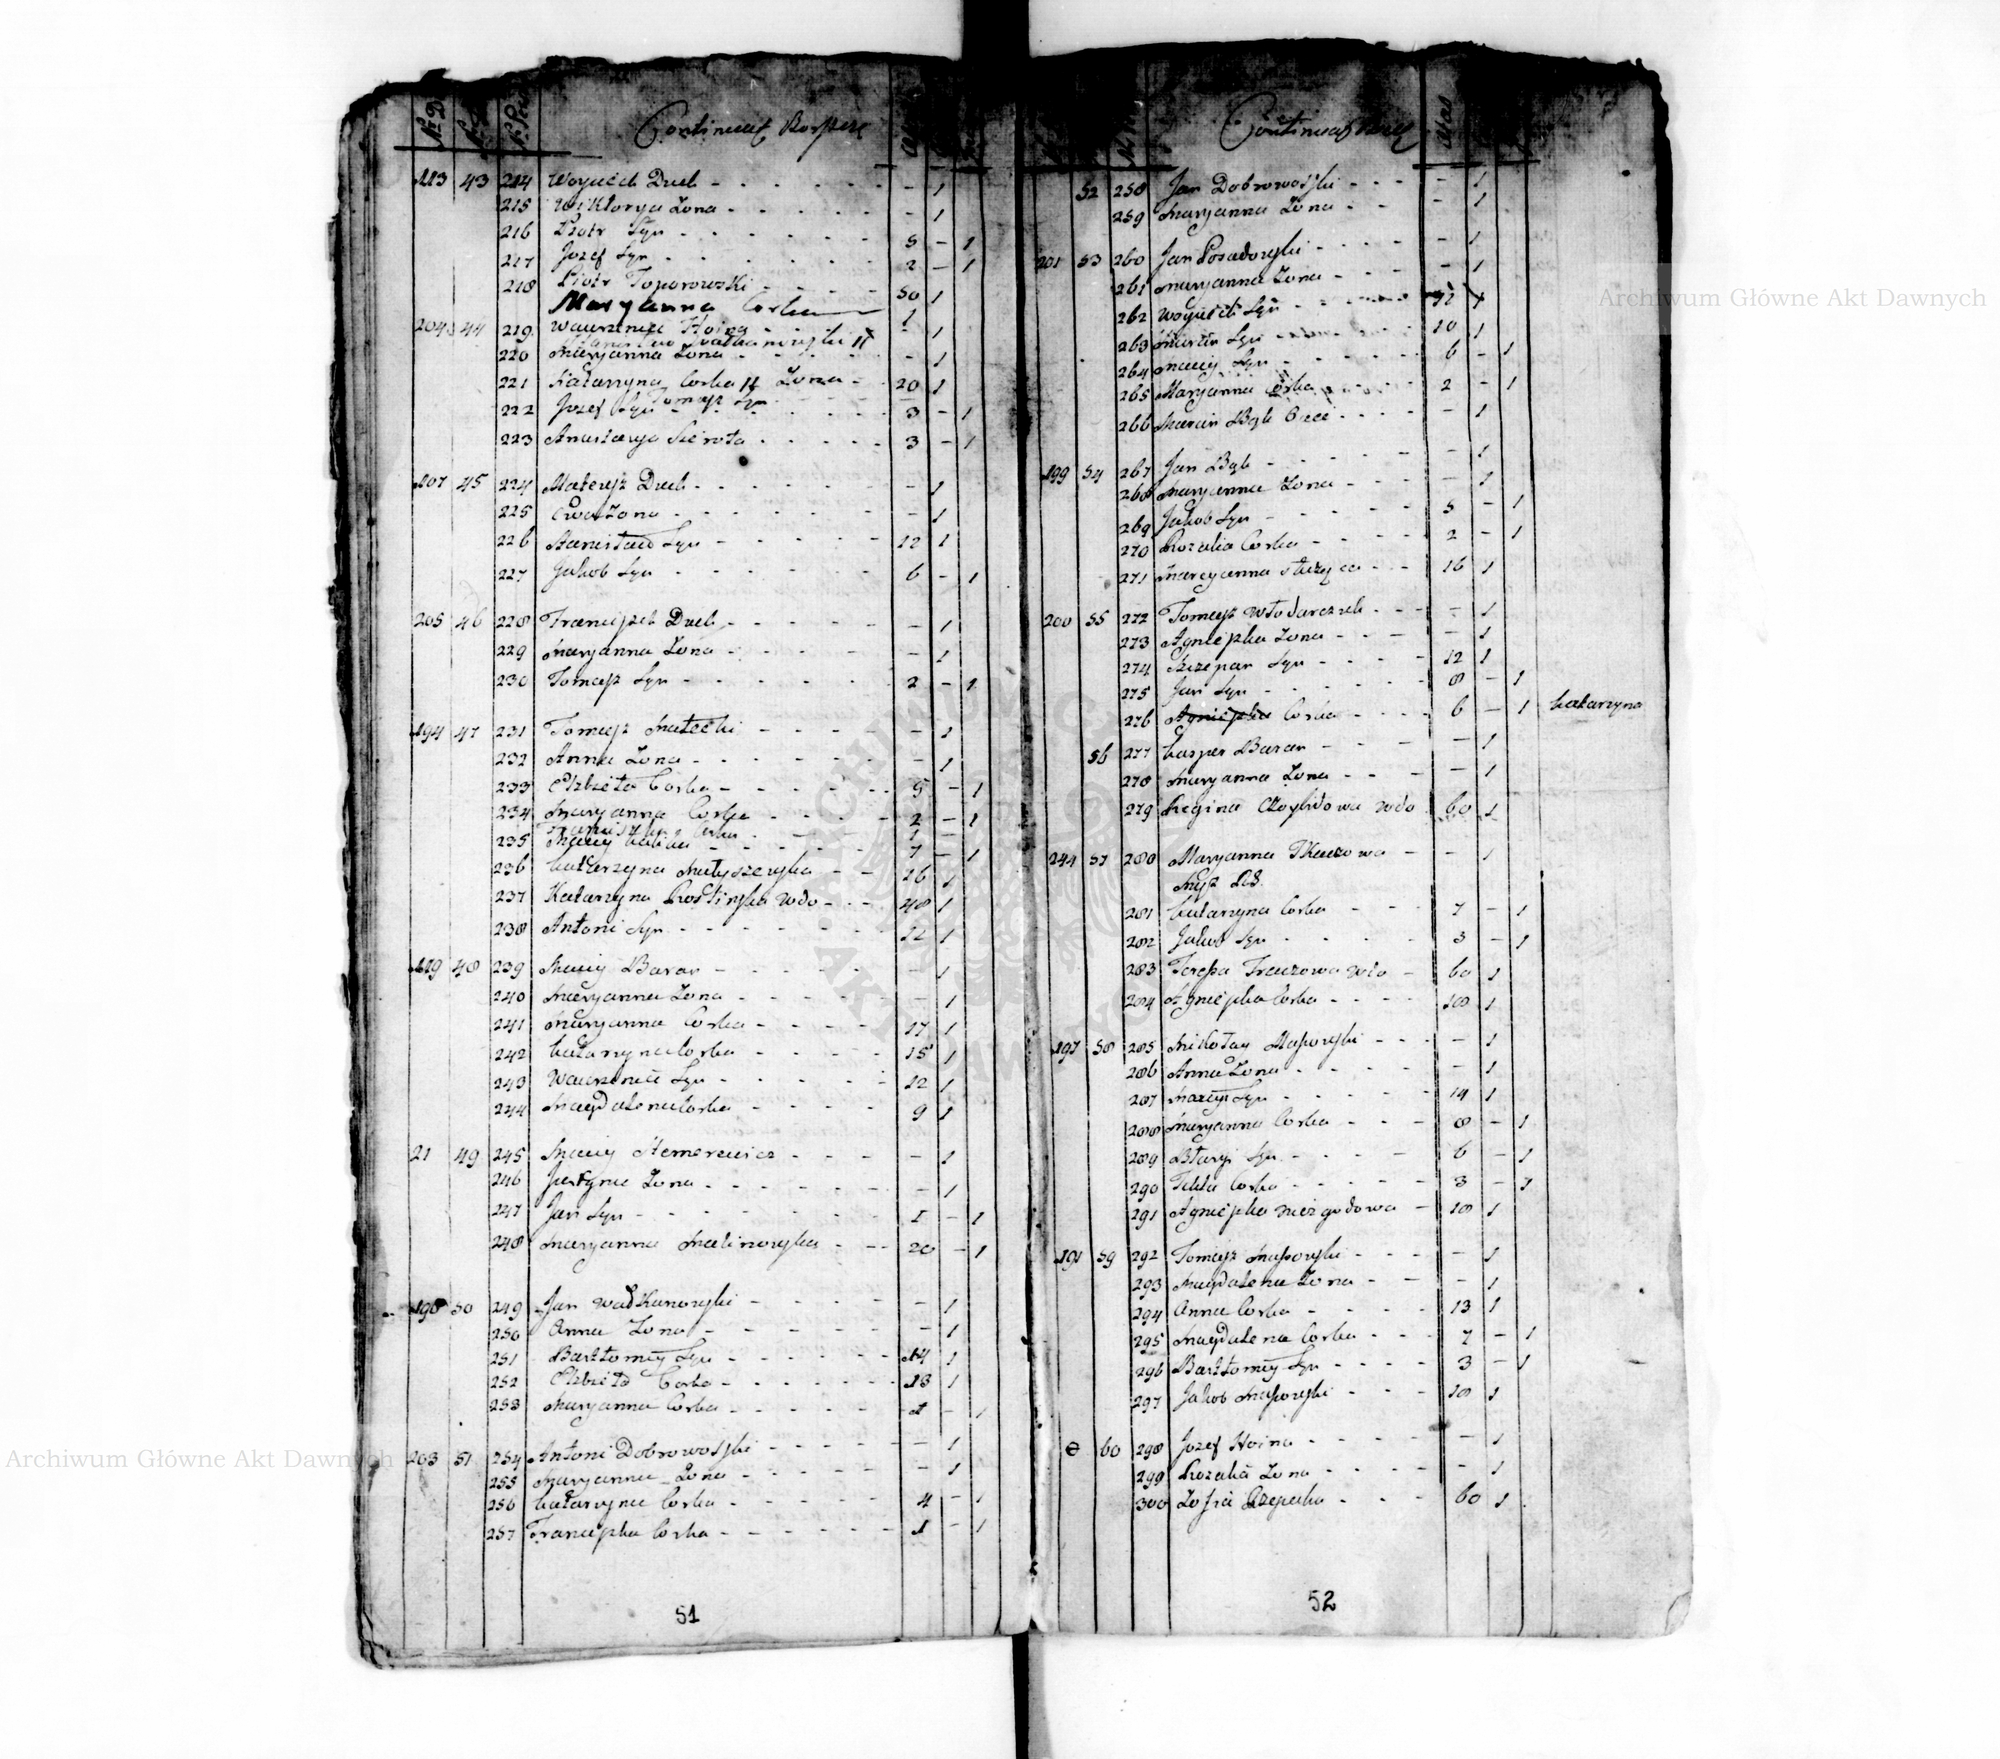 Continuat
113 43 214 Woyciech Duch - 1
215 Wiktorya Żona - 1
216 Piotr Syn 5 - 1
217 Jozef Syn 2 - 1
218 Piotr Toporowski 50 1
Maryanna Corka 1
204 44 219 Wawrzeniec Hoina - 1
220 Maryanna Żona - 1
221 Katarzyna Corka Żona 20 1
Tomasz Syn
222 Jozef Syn 3 - 1
223 Anastazya Sierota 3 - 1
107 45 224 Mateusz Duch - 1
225 Ewa Żona - 1
226 Stanisław Syn 12 1
227 Jakob Syn 6 - 1
205 46 228 Franciszek Duch - 1
229 Maryanna Żona - 1
230 Tomasz Syn 2 - 1
194 47 231 Tomasz Małecki - 1
232 Anna Żona - 1
233 Elżbieta Corka 5 - 1
234 Maryanna Corka 2 - 1
Franciszka Corka 1 -
235 Maciej 7 - 1
236 Katarzyna Matyszewska 16 1
237 Katarzyna Rostinska Wdo 48 1
238 Antoni Syn 12 1
119 48 239 Maciy Baran - 1
240 Maryanna Żona - 1
241 Maryanna Corka 17 1
242 Katarzyna Corka 15 1
243 Wawrzeniec Syn 12 1
244 Magdalena Corka 9 1
21 49 245 Maciy - 1
246 Justyna Żona - 1
247 Jan Syn 1 - 1
248 Maryanna Malinowska 20 - 1
198 50 249 Jan Wadkanowski - 1
250 Anna Żona - 1
251 Bartłomiy Syn 14 1
252 Elżbieta Corka 13 1
253 Maryanna Corka 1 - 1
203 51 254 Antoni Dobrowolski - 1
255 Maryanna Żona - 1
256 Katarzyna Corka 4 - 1
257 Franciszka Corka 1 - 1
51
Continuat
52 258 Jan Dobrowolski - 1
259 Maryanna Żona - 1
201 53 260 Jan Posadowski - 1
261 Maryanna Żona - 1
262 Woyciech Syn 12 1
263 Marcin Syn 10 1
264 Maciy Syn 6 - 1
265 Maryanna Corka 2 - 1
266 Marcin Bąk Ociec - 1
199 54 267 Jan Bąk - 1
268 Maryanna Żona - 1
269 Jakob Syn 5 - 1
270 Rozalia Corka 2 - 1
271 Maryanna służąca 16 1
200 55 272 Tomasz Włodarczek - 1
273 Agnieszka Żona - 1
274 Szczepan Syn 12 1
275 Jan Syn 8 - 1
276 Agnieszka Corka 6 - 1 Katarzyna
56 277 Kasper Baran - 1
278 Maryanna Żona - 1
279 Regina Wdo 60 1
244 57 280 Maryanna Tkaczowa - 1
281 Katarzyna Corka 7 - 1
282 Jakob Syn 3 - 1
283 Teressa Tkaczowa Wdo 60 1
284 Agnieszka Corka 18 1
197 58 285 Mikołay Massowski - 1
286 Anna Żona - 1
287 Maciy Syn 14 1
288 Maryanna Corka 8 - 1
289 Błażej Syn 6 - 1
290 Tekla Corka 3 - 1
291 Agnieszka Niezgodowa 18 1
191 59 292 Tomasz Massowski - 1
293 Magdalena Żona - 1
294 Anna Corka 13 1
295 Magdalena Corka 7 - 1
296 Bartłomiy Syn 3 - 1
297 Jakob Massowski 18 1
60 298 Jozef Hoina - 1
299 Rozalia Żona - 1
300 Zofia Rzepecka 60 1
52
Archiwum Główne Akt Dawnych
Archiwum Główne Akt Dawnych